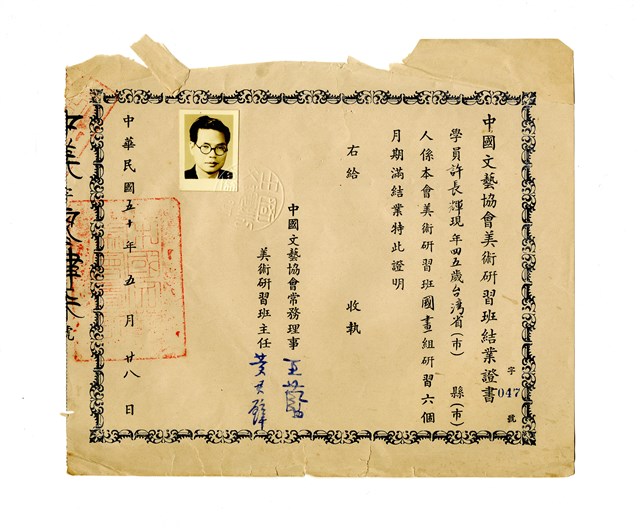 中國文藝協會美術研習班結業證書
字047號
學員許長輝現年四五歲台灣省(市)　縣(市)
人係本會美術研習班國畫組研習六個
月期滿結業特此證明
右給　收執
中國文藝協會常務理事 王藍
美術研習班主任 黃君璧
中華民國五十年五月廿八日